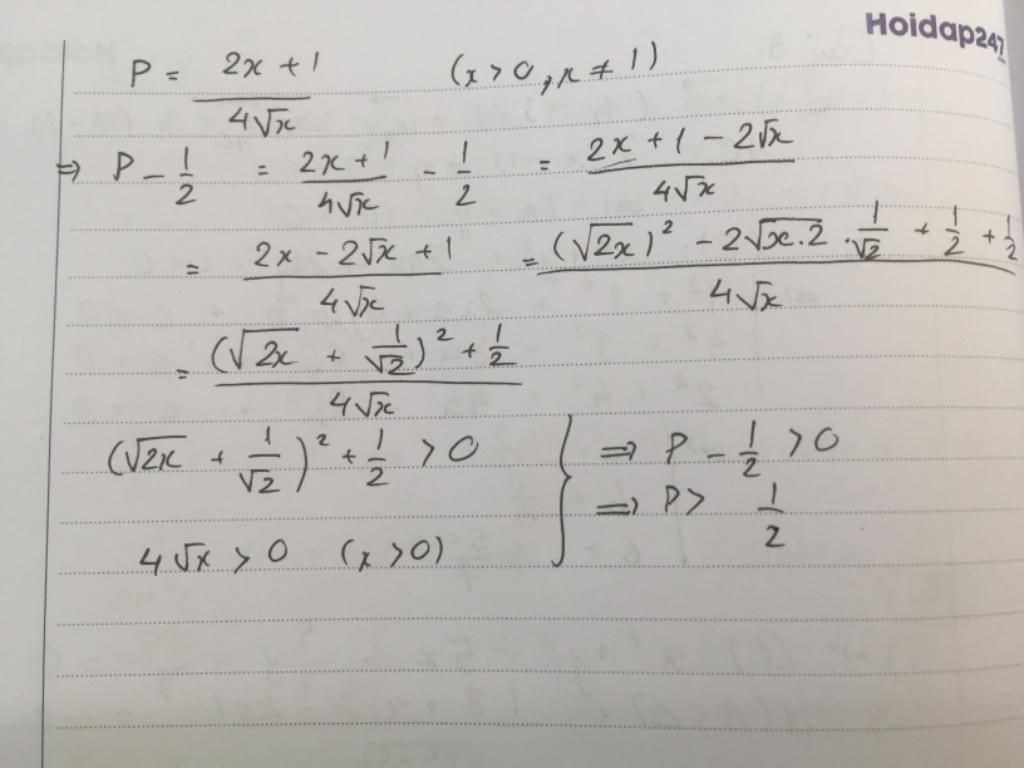 Hoidap247
P = (2x + 1)/(4√x) (x > 0, x ≠ 1)
⇒ P - 1/2 = (2x + 1)/(4√x) - 1/2 = (2x + 1 - 2√x)/(4√x)
= (2x - 2√x + 1)/(4√x) = ((√2x)² - 2√x.2 . 1/√2 + 1/2 + 1/2)/(4√x)
= ((√2x + 1/√2)² + 1/2)/(4√x)
(√2x + 1/√2)² + 1/2 > 0 } ⇒ P - 1/2 > 0
⇒ P > 1/2
4√x > 0 (x > 0)